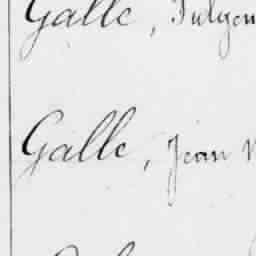 Galle, Fulgen
Galle, Jean